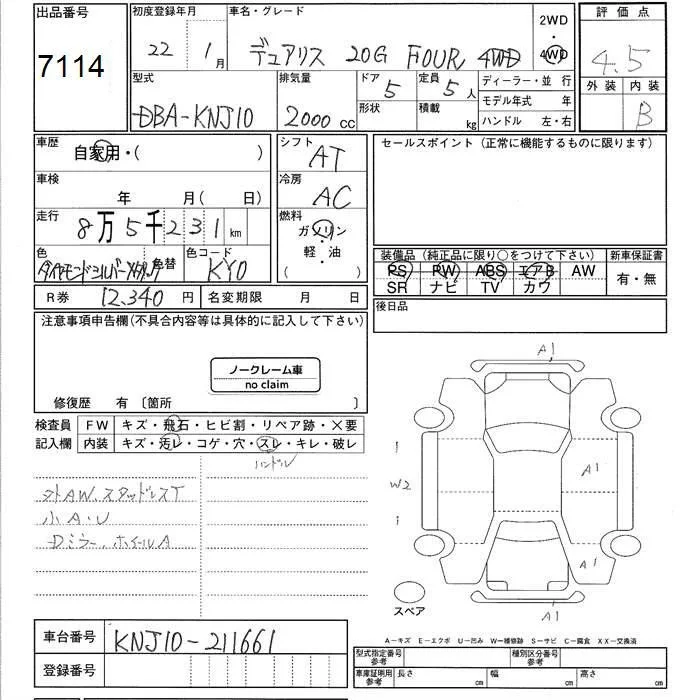 出品番号 初度登録年月 車名・グレード 2WD ・ 4WD 評価点
7114 22 1月 デュアリス 20G FOUR 4WD 4.5
型式 排気量 ドア 5 定員 5人 ディーラー・並 行 外装 内装
DBA-KNJ10 2000cc 形状 積載 kg モデル年式 年 B
ハンドル 左・右
車歴 自家用・( ) シフト AT セールスポイント(正常に機能するものに限ります)
車検 年 月(日) 冷房 AC
走行 8万5千231km 燃料 ガソリン・軽・油 ( )
色 色替 色コード KY0 装備品(純正品に限り○をつけて下さい) 新車保証書
PS PW ABS エアB AW 有・無
SR ナビ TV カワ
R券 12,340円 名変期限 月 日 後日品
注意事項申告欄(不具合内容等は具体的に記入して下さい)
ノークレーム車
no claim
修復歴 有 〔箇所 〕
検査員 FW キズ・飛石・ヒビ割・リペア跡・×要
記入欄 内装 キズ・汚レ・コゲ・穴・スレ・キレ・破レ
ハンドル
外AW、スタッドレスT
小A・U
Dミラー、ホイールA
A1
1
W2 A1
1
A1
A1
スペア
A-キズ E-エクボ U-凹み W-補修跡 S-サビ C-腐食 XX-交換済
車台番号 KNJ10-211661
登録番号
型式指定番号 参考 種別区分番号 参考
車庫証明用 参考 長さ cm 幅 cm 高さ cm